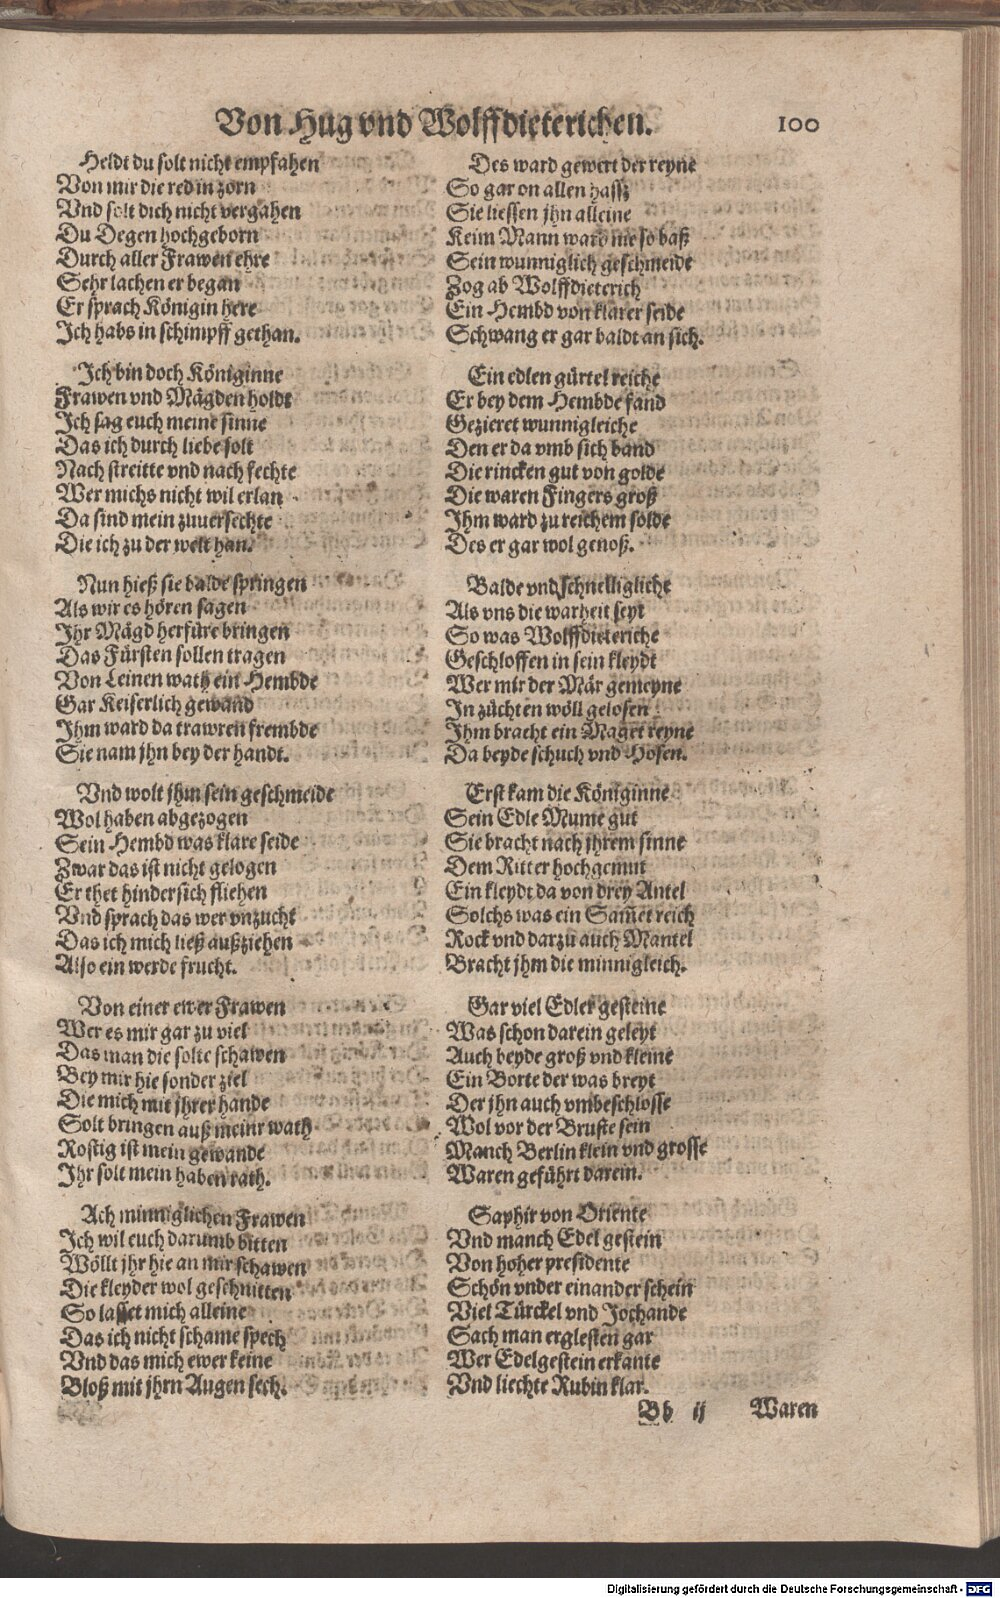 Von Hug vnd Wolffdieterichen. 100
Heldt du solt nicht empfahen
Von mir die red in zorn
Vnd solt dich nicht vergahen
Du Degen hochgeborn
Durch aller Frawen ehre
Sehr lachen er began
Er sprach Königin here
Ich habs in schimpff gethan.
Ich bin doch Königinne
Frawen vnd Mägden holdt
Ich sag euch meine sinne
Das ich durch liebe solt
Nach streitte vnd nach fechte
Wer michs nicht wil erlan
Da sind mein zuuersechte
Die ich zu der welt han.
Nun hieß sie balde springen
Als wir es hören sagen
Ihr Mägd herfüre bringen
Das Fürsten sollen tragen
Von Leinen wath ein Hembde
Gar Keiserlich gewand
Ihm ward da trawren frembde
Sie nam jhn bey der handt.
Vnd wolt jhm sein geschmeide
Wol haben abgezogen
Sein Hembd was klare seide
Zwar das ist nicht gelogen
Er thet hindersich fliehen
Vnd sprach das wer vnzucht
Das ich mich ließ außziehen
Also ein werde frucht.
Von einer ewer Frawen
Wer es mir gar zu viel
Das man die solte schawen
Bey mir hie sonder ziel
Die mich mit jhrer hande
Solt bringen auß meinr wath
Rostig ist mein gewande
Ihr solt mein haben rath.
Ach minniglichen Frawen
Ich wil euch darumb bitten
Wöllt jhr hie an mir schawen
Die kleyder wol geschnitten
So lasset mich alleine
Das ich nicht schame spech
Vnd das mich ewer keine
Bloß mit jhrn Augen sech.
Des ward gewert der reyne
So gar on allen hassz
Sie liessen jhn alleine
Keim Mann ward nie so baß
Sein wunniglich geschmeide
Zog ab Wolffdieterich
Ein Hembd von klarer seide
Schwang er gar baldt an sich.
Ein edlen gürtel reiche
Er bey dem Hembde fand
Gezieret wunnigleiche
Den er da vmb sich band
Die rincken gut von golde
Die waren Fingers groß
Ihm ward zu reichem solde
Des er gar wol genoß.
Balde vnd schnelligliche
Als vns die warheit seyt
So was Wolffdieteriche
Geschloffen in sein kleydt
Wer mir der Mär gemeyne
In züchten wöll gelosen
Ihm bracht ein Magrt reyne
Da beyde schuch vnd Hosen.
Erst kam die Königinne
Sein Edle Mume gut
Sie bracht nach jhrem sinne
Dem Ritter hochgemut
Ein kleydt da von drey Antel
Solchs was ein Sam̃et reich
Rock vnd darzu auch Mantel
Bracht jhm die minnigleich.
Gar viel Edler gesteine
Was schon darein geleyt
Auch beyde groß vnd kleine
Ein Borte der was breyt
Der jhn auch vmbeschlosse
Wol vor der Bruste sein
Manch Berlin klein vnd grosse
Waren geführt darein.
Saphir von Oriente
Vnd manch Edel gestein
Von hoher presidente
Schön vnder einander schein
Viel Türckel vnd Jochande
Sach man erglesten gar
Wer Edelgestein erkante
Vnd liechte Rubin klar.
Bb ij Waren
Digitalisierung gefördert durch die Deutsche Forschungsgemeinschaft - DFG